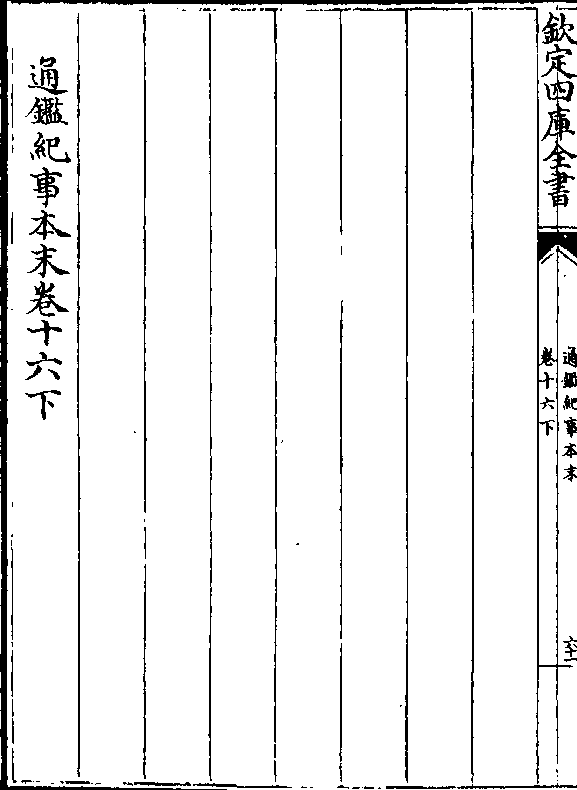 欽定四庫全書
通鑑紀事本末
卷十六下
六十一
通鑑紀事本末卷十六下